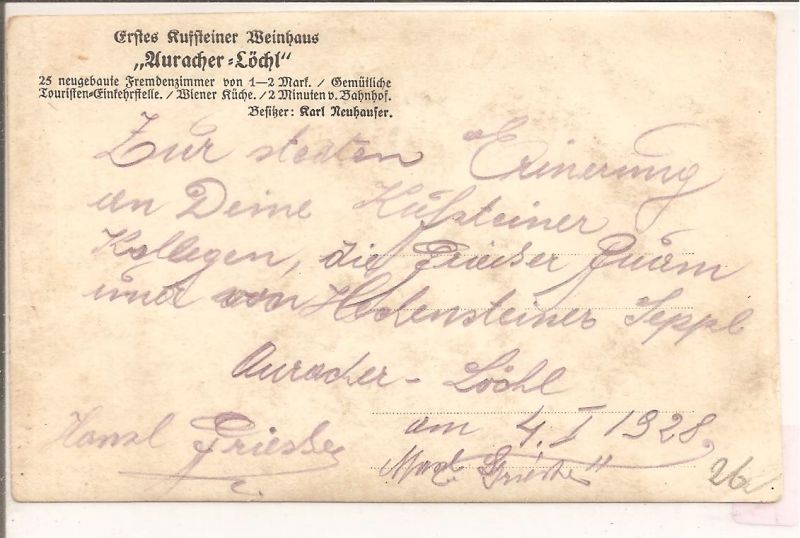 Erstes Kufsteiner Weinhaus
„Auracher=Löchl“
25 neugebaute Fremdenzimmer von 1—2 Mark. / Gemütliche
Touristen=Einkehrstelle. / Wiener Küche. / 2 Minuten v. Bahnhof.
Besitzer: Karl Neuhauser.
Zur steten Erinerung
an Deine Kufsteiner
Kollegen, die
und von Hohensteiner Seppl
Auracher - Löchl
am 4. I 1928.
Hansl Griesser
26